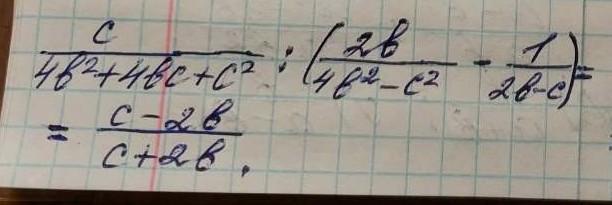 c/(4b²+4bc+c²) : (2b/(4b²-c²) - 1/(2b-c)) =
= (c-2b)/(c+2b).